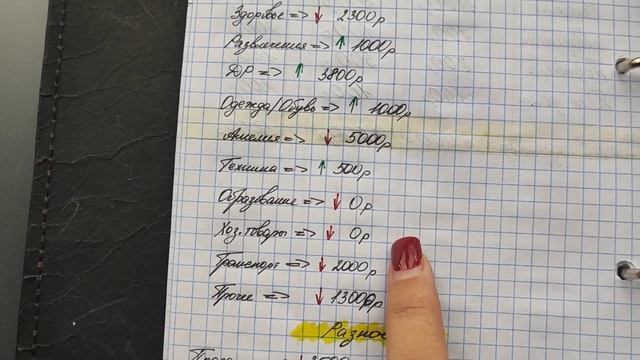 Здоровье => ↓ 2300р
Развлечения => ↑ 1000р
ДР => ↑ 3800р
Одежда/Обувь => ↑ 1000р
Амелия => ↓ 5000р
Техника => ↑ 500р
Образование => ↓ 0р
Хоз. товары => ↓ 0р
Транспорт => ↓ 2000р
Прочее => ↓ 1300р